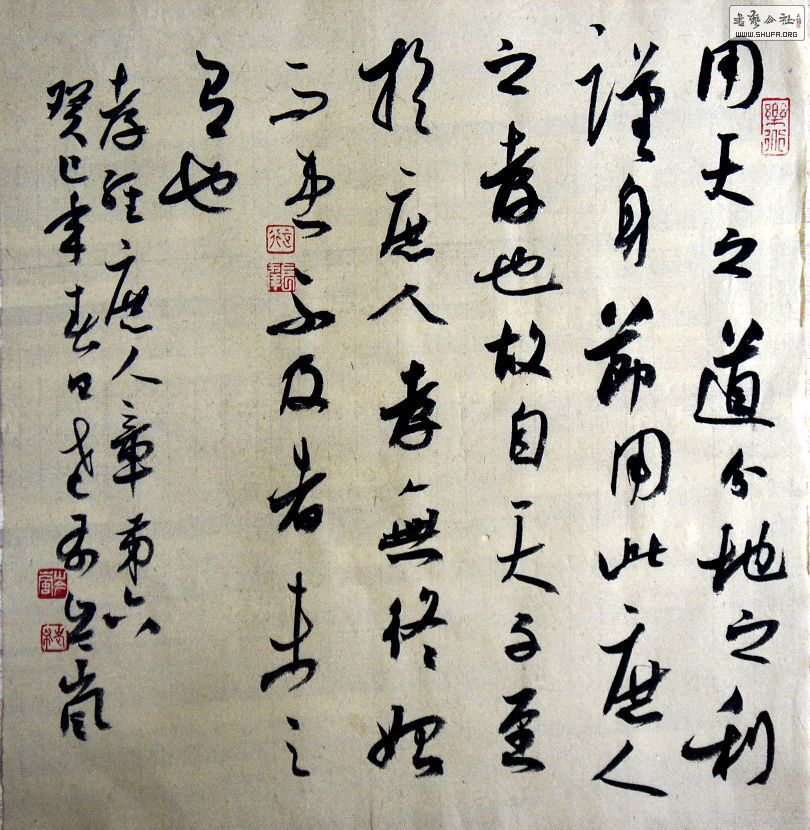 用天之道分地之利
謹身節用此庶人
之孝也故自天子至
於庶人孝無終始
而患不及者未之
有也
孝經庶人章第六
癸巳年春日老
書藝公社
WWW.SHUFA.ORG